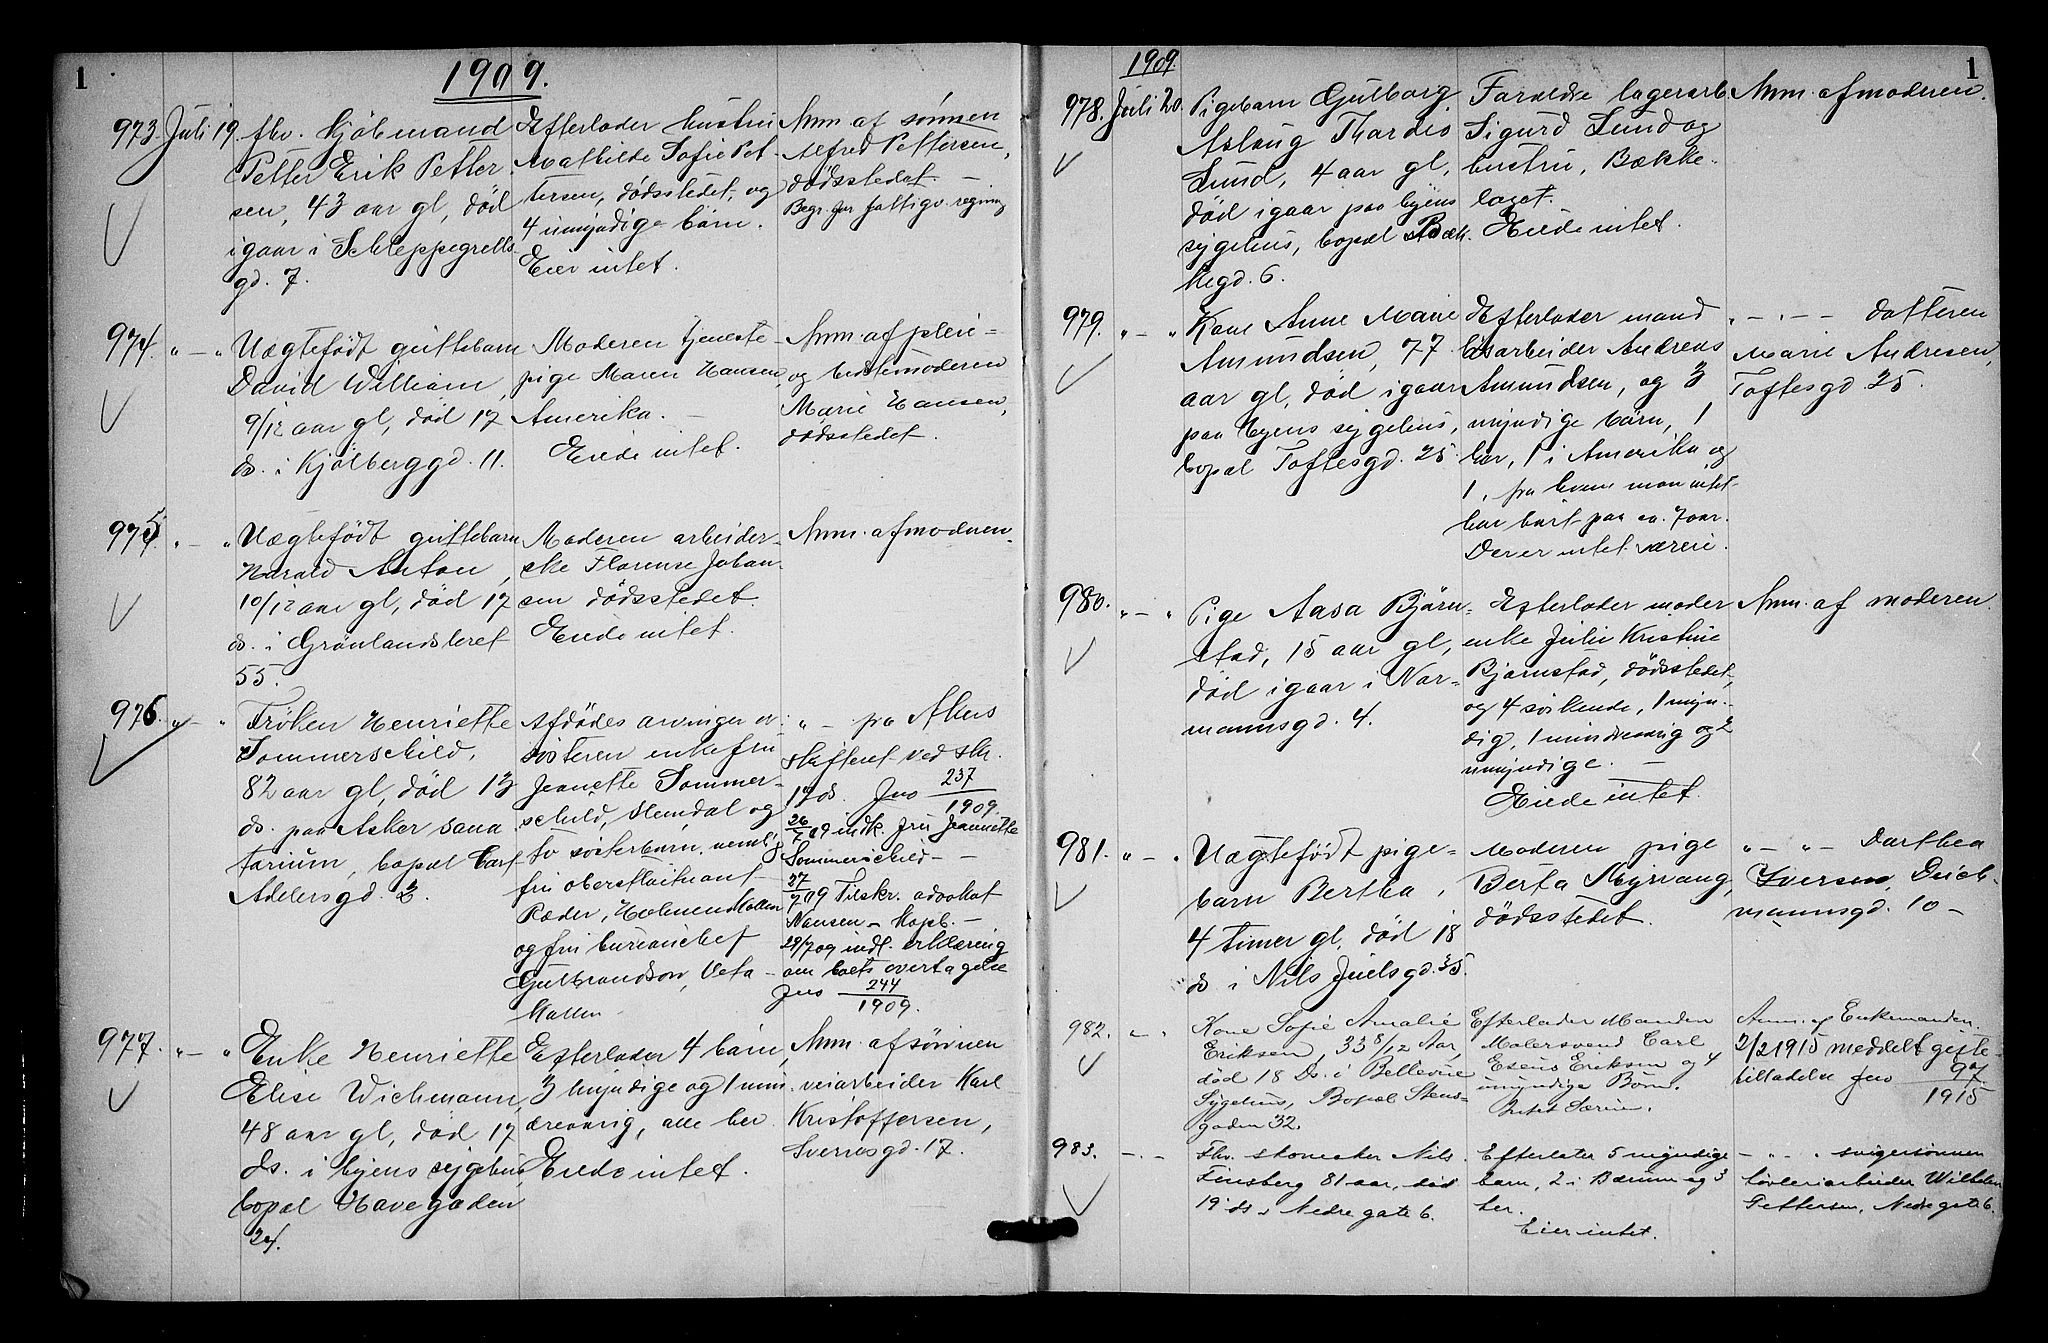 1
1909.
973. Juli 19. fhv. kjöbmand
Petter Erik Petter-
sen, 43 aar gl, död
igaar i Schleppegrells
gd. 7.
Efterlader hustru
Mathilde Sofie Pet-
tersen, dödsstedet, og
4 umyndige börn.
Eier intet.
Anm. af sönnen
Alfred Pettersen,
dödsstedet. —
Begr. for fattigv. regning
974. " — " Uægtefödt guttebarn
David William,
9/12 aar gl, död 17
ds. i Kjölberggd. 11.
Moderen tjeneste-
pige Maren Hansen,
Amerika. —
Eiede intet.
Anm. af pleie-
og bedstemoderen
Marie Hansen,
dödsstedet.
975. " — " Uægtefödt guttebarn
Harald Anton,
10/12 aar gl, död 17
ds. i Grönlandsleret
55.
Moderen arbeider-
ske Florense Johan-
sen dödsstedet.
Eiede intet.
Anm. af moderen.
976. " — " Fröken Henriette
Sommerschild,
82 aar gl, död 13
ds. paa Asker sana-
torium, bopæl Carl
Adelersgd. 3.
Afdödes arvinger er
sösteren enkefru
Jeanette Sommer-
schild, Slemdal og
to sösterbarn, nemlig
fru oberstløitnant
Ræder, Holmenkollen
og fru bureauchef
Gulbrandson, Veta-
kollen
" — fra Akers
skifteret ved skr.
17 ds. Jno 237/1909.
26/7 09 indk. fru Jeannette
Sommerschild — —
27/7 09 Tilskr. advokat
Nansen — Kopb. —
29/7 09 indl. erklæring
om boets overtagelse
Jno 244/1909.
977. " — " Enke Henriette
Elise Wichmann,
48 aar gl, död 17
ds. i byens sygehus
bopæl Havegaden
24.
Efterlader 4 börn,
3 myndige og 1 min-
dreaarig, alle her
Eiede intet.
Anm. af sönnen
veiarbeider Karl
Kristoffersen,
Sverresgd. 17.
1909.
1
978. Juli 20. Pigebarn Gulborg
Aslaug Thordis
Lund, 4 aar gl,
död igaar paa byens
sygehus, bopæl Bæk-
kegd. 6.
Forældre lagerarb.
Sigurd Lund og
hustru, Bække-
laget.
Eiede intet.
Anm. af moderen.
979. " — " Kone Anne Marie
Amundsen, 77
aar gl, död igaar
paa byens sygehus,
bopæl Toftesgd. 25
Efterlader mand
arbeider Andreas
Amundsen, og 3
myndige börn, 1
her, 1 i Amerika og
1, fra hvem man intet
har hört paa ca. 7 aar.
Der er intet særeie.
" — " — datteren
Marie Andresen,
Toftesgd 25.
980. " — " Pige Aasa Björn-
stad, 15 aar gl,
död igaar i Nor-
mannsgd. 4.
Efterlader moder
enke Julie Kristine
Bjørnstad, dödsstedet,
og 4 söskende, 1 myn-
dig, 1 mindreaarig og 2
umyndige. —
Eiede intet.
Anm. af moderen.
981. " — " Uægtefödt pige-
barn Bertha,
4 timer gl, död 18
ds i Nils Juelsgd. 35.
Moderen pige
Berta Myrvang,
dödsstedet.
" — " — Dorthea
Iversen, Deich-
mannsgd. 10 —
982. " — " Kone Sofie Amalie
Eriksen, 33 8/12 Aar,
død 18 Ds. i Bellevue
Sygehus, Bopæl Stens-
gaden 32.
Efterlader Manden
Malersvend Carl
Esenus Eriksen og 4
umyndige Børn.
Intet Særeie.
Anm. af Enkemanden.
2/2 1915 meddelt gifte-
tilladelse Jno 97/1915
983. — " — Fhv. skomaker Nils
Finsberg 81 aar, död
19 ds i Nedregate 6.
Efterlater 5 myndige
barn, 2 i Bærum og 3
her.
Eier intet.
— " — " svigersönnen
høvleriarbeider Wilhelm
Pettersen, Nedregate 6.